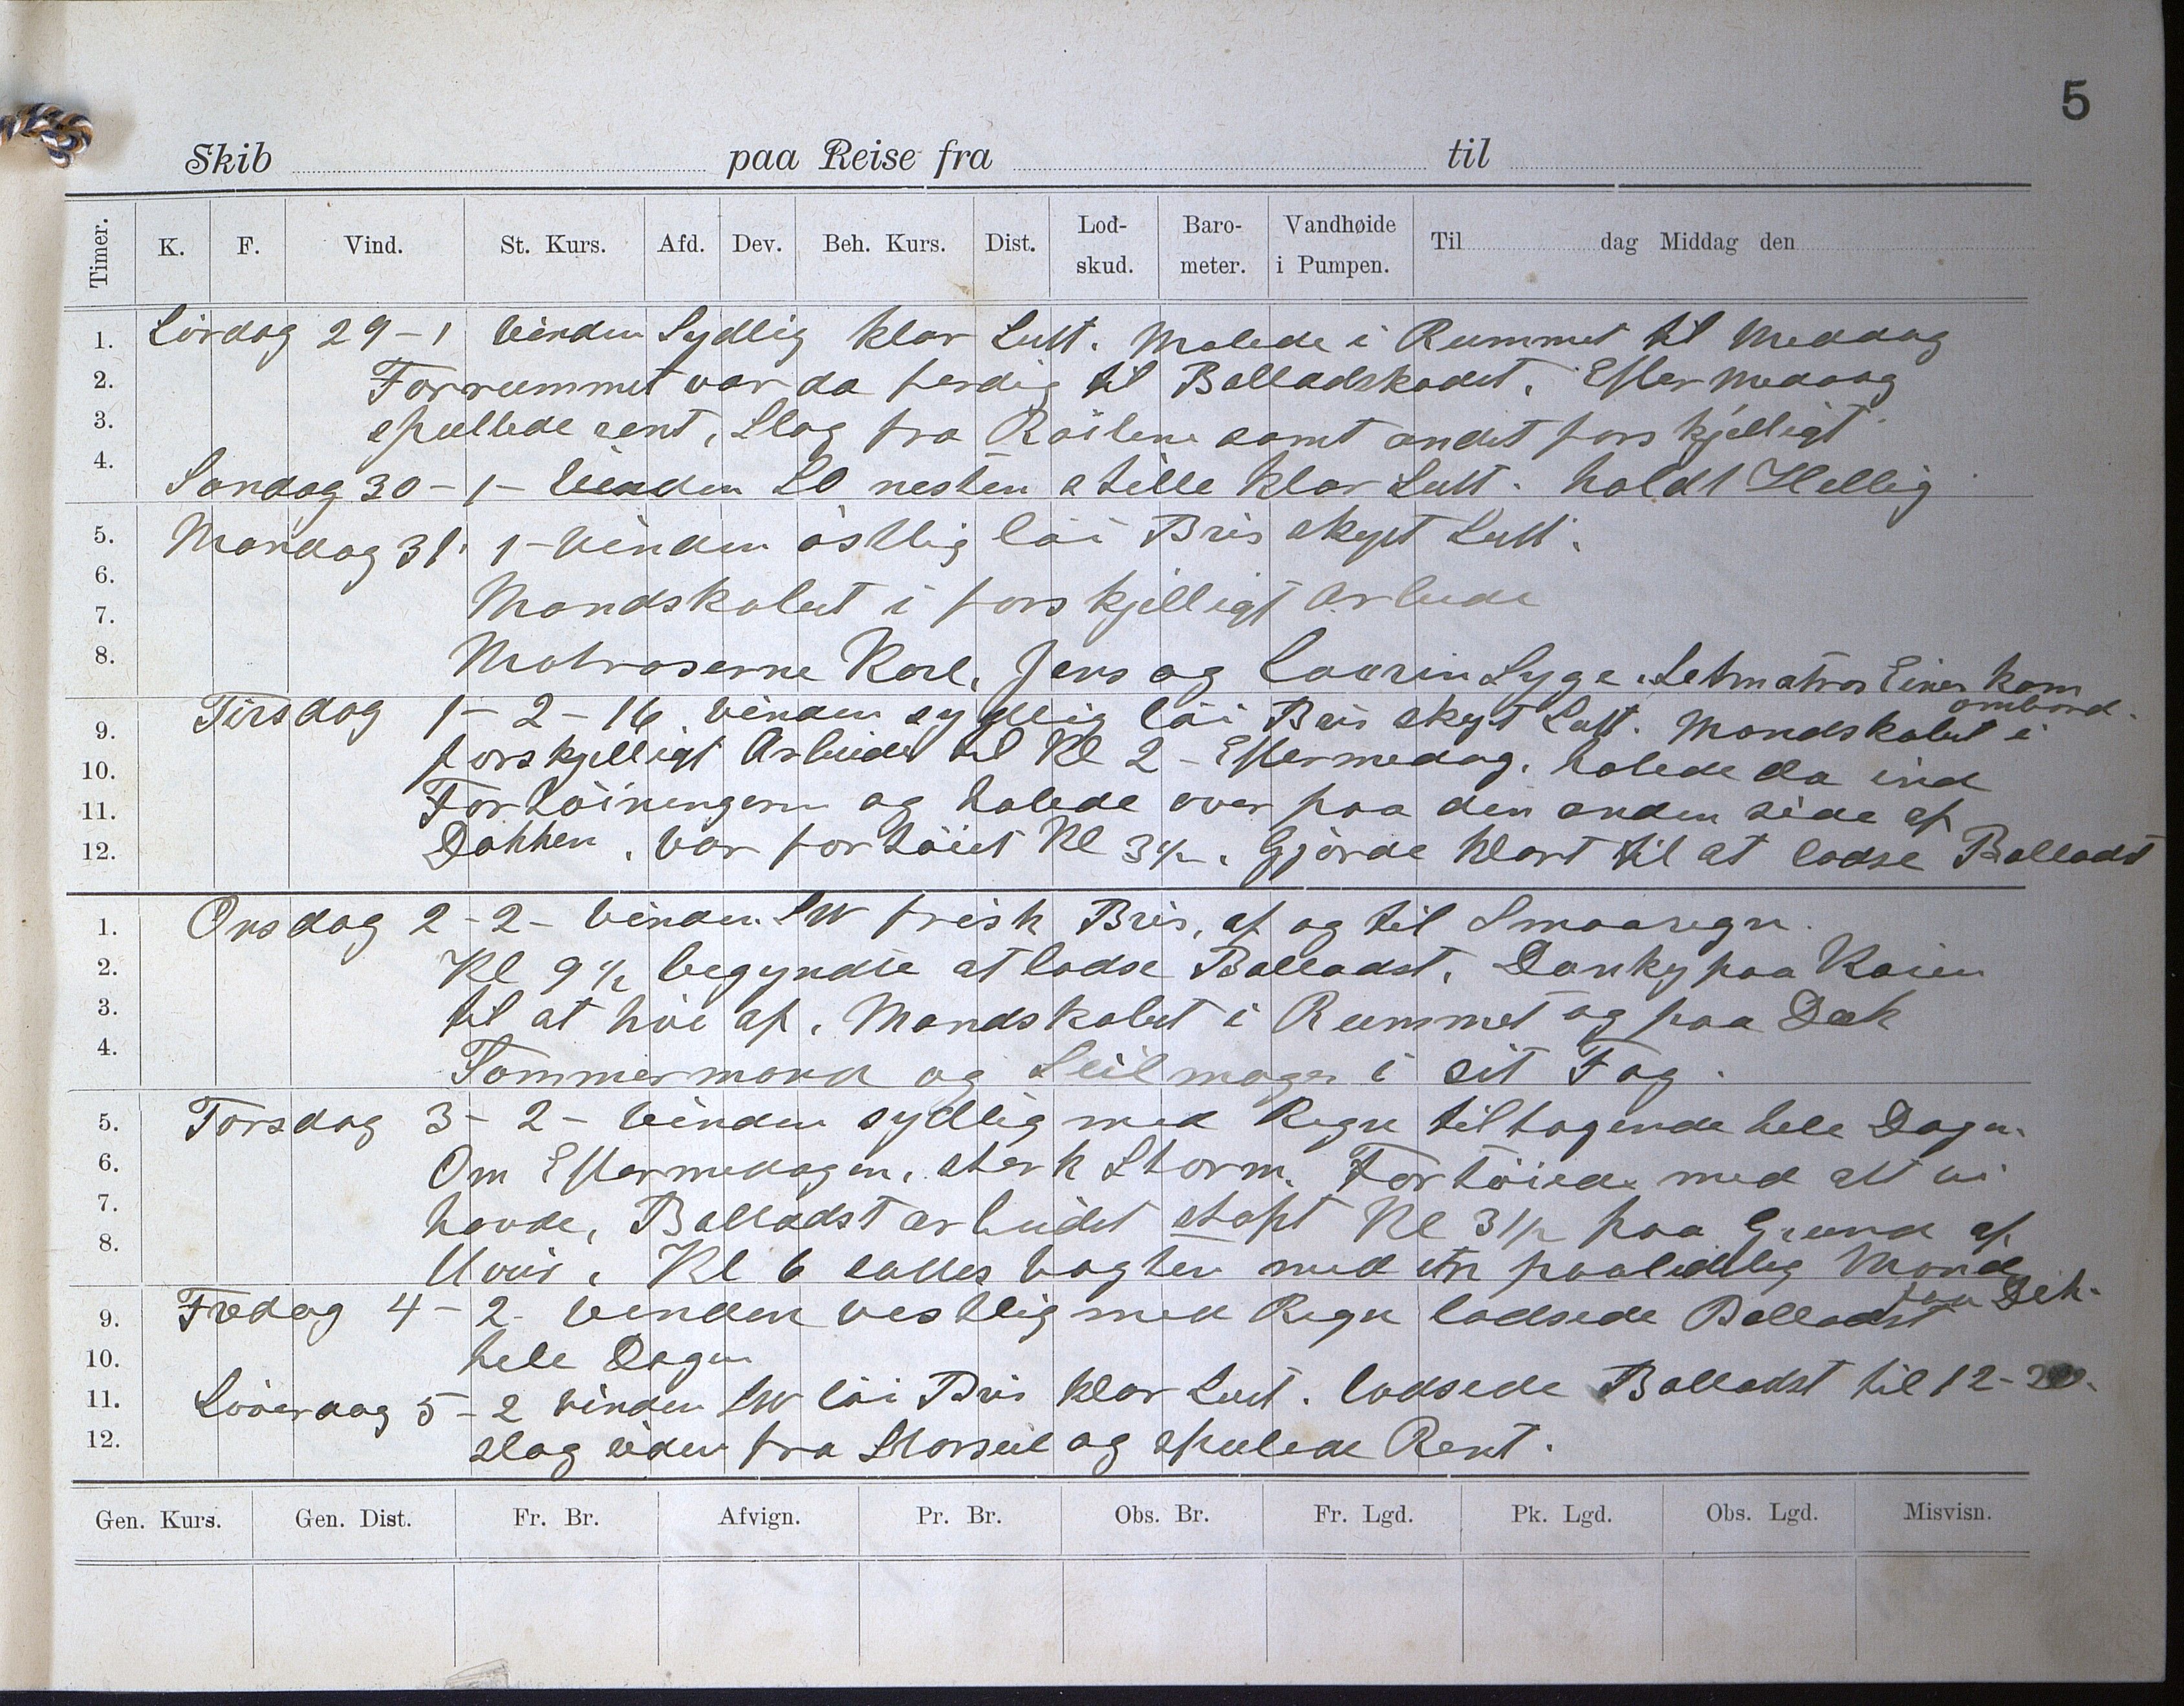 5
Skib paa Reise fra til
Timer. K. F. Vind. St. Kurs. Afd. Dev. Beh. Kurs. Dist. Lod-skud. Baro-meter. Vandhøide i Pumpen. Til dag Middag den
1. Lördag 29-1 Vinden Sydlig klar Luft. Malede i Rummet til Meddag
2. Forrummet var da ferdig til Balladskadet. Efter Medaag
3. spullede rent, Slog fra Råilene samt andet forskjelligt
4. Søndag 30-1- Vinden SO nesten stille klar Luft. holdt Hellig
5. Mandag 31. 1- Vinden östlig löi Bris skyet Luft.
6. Mandskabet i forskjelligt Arbeide
7.
8. Matroserne Karl, Jens og Laurin Syge. Letmatros Einer kom ombord.
9. Tirsdag 1-2-16. Vinden sydlig löi Bris skyet Luft. Mandskabet i
10. forskjelligt Arbeide til Kl 2 - Eftermedag. halede da ind
11. Fortöiningerne og halede over paa den anden side af
12. Dokken. Var fortöiet Kl 3½. Gjörde klart til at lodse Balladst
1. Onsdag 2-2- Vinden SW frisk Bris, af og til Smaaregn.
2. Kl 9½ begyndte at lodse Balladst. Donky paa Kaien
3. til at hive af. Mandskabet i Rummet og paa Dæk
4. Tømmermand og Seilmager i sit Fag.
5. Torsdag 3-2- Vinden sydlig med Regn tiltagende hele Dagen.
6. Om Eftermedagen. sterk Storm. Fortöiede med alt vi
7. havde, Balladstarbeidet stopt Kl 3½ paa Grund af
8. Uveir. Kl 6 sattes Vagten med en paalidelig Mand paa Dek.
9. Fredag 4-2- Vinden vestlig med Regn lodsede Balladst
10. hele Dagen
11. Löverdag 5-2 Vinden SW löi Bris klar Luft. lodsede Balladst til 12-
12. slog siden fra Storseil og spulede Rent.
Gen. Kurs. Gen. Dist. Fr. Br. Afvign. Pr. Br. Obs. Br. Fr. Lgd. Pk. Lgd. Obs. Lgd. Misvisn.